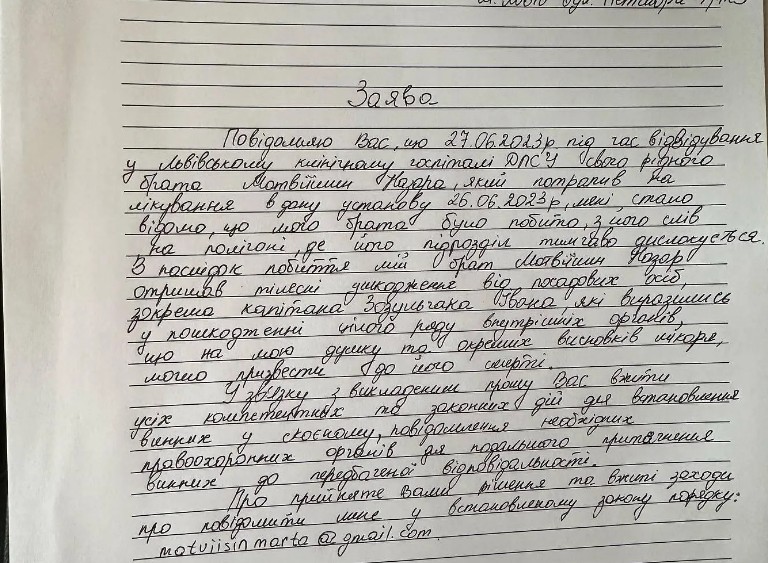 м. Львів вул.
Заява
Повідомляю Вас, що 27.06.2023р під час відвідування
у Львівському клінічному госпіталі ДПСУ свого рідного
брата Матвіїшин Назара, який потрапив на
лікування в дану установу 26.06.2023р, мені стало
відомо, що мого брата було побито, з його слів
на полігоні, де його підрозділ тимчаво дислокується.
В послідок побиття мій брат Матвіїшин Назар
отримав тілесні ушкодження від посадових осіб,
зокрема капітана Зозульчака Івана, які виразились
у пошкодженні цілого ряду внутрішніх органів,
що на мою думку та окремих висновків лікаря,
могло призвести до його смерті.
У звязку з викладеним прошу Вас вжити
усіх компетентних та законних дій для встановлення
винних у скоєному, повідомлення необхідних
правоохоронних органів для подальшого притягнення
винних до передбаченої відповідальності.
Про прийняте Вами рішення та вжиті заходи
про повідомити мене у встановленому закону порядку:
matviisin.marta@gmail.com